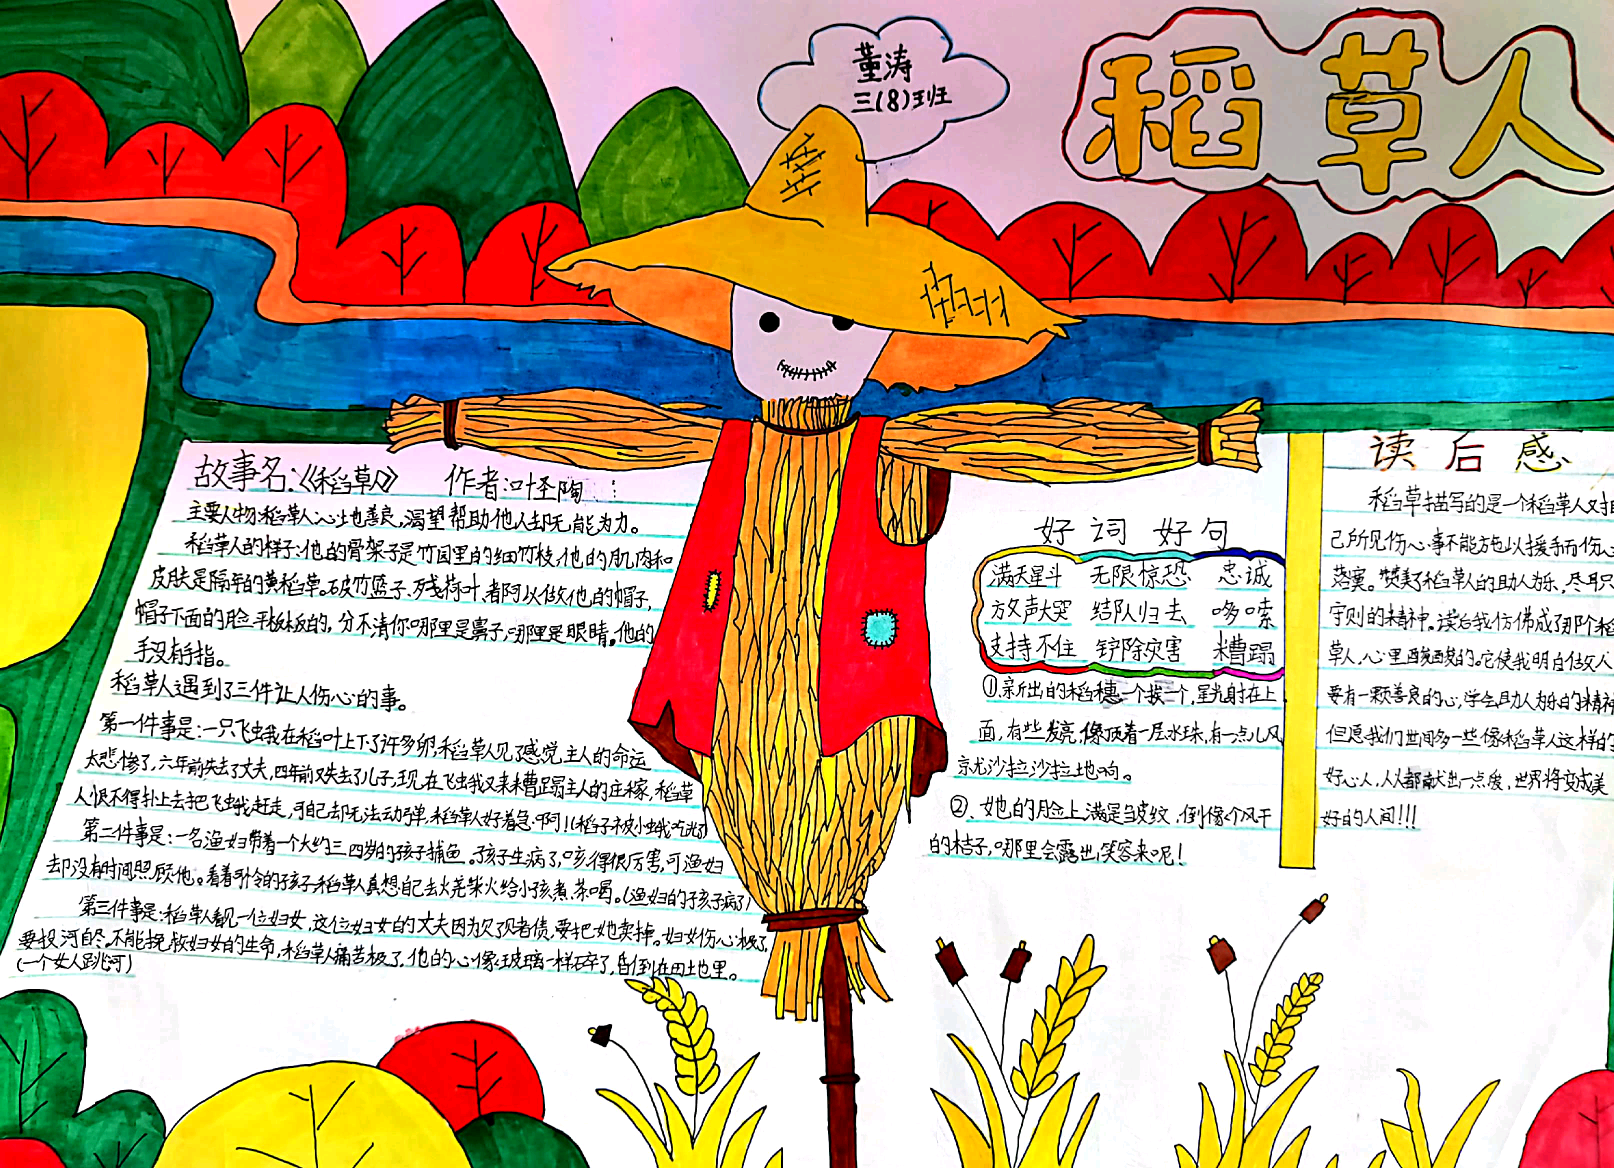 稻草人
董涛
三(8)班
故事名:《稻草人》 作者:叶圣陶
主要人物:稻草人心地善良,渴望帮助他人却无能为力。
稻草人的样子:他的骨架子是竹园里的细竹枝,他的肌肉和
皮肤是隔年的黄稻草。破竹篮子、残荷叶、都可以做他的帽子,
帽子下面的脸平板板的,分不清你哪里是鼻子,哪里是眼睛。他的
手没有手指。
稻草人遇到了三件让人伤心的事。
第一件事是:一只飞虫蛾在稻叶上下了许多卵,稻草人见了感觉主人的命运
太悲惨了,六年前失去了丈夫,四年前又失去了儿子,现在飞虫蛾又来糟蹋主人的庄稼,稻草
人恨不得扑上去把飞蛾赶走,可自己却无法动弹,稻草人好着急啊!(稻子被小蛾吃光了)
第二件事是:一名渔妇带着一个大约三四岁的孩子捕鱼。孩子生病了,咳得很厉害,可渔妇
却没有时间照顾他。看着可怜的孩子稻草人真想自己去火柴给小孩煮茶喝。(渔妇的孩子病了)
第三件事是:稻草人看见一位妇女,这位妇女的丈夫因为欠了债,要把她卖掉。妇女伤心极了,
要投河自尽。不能挽救妇女的生命,稻草人痛苦极了,他的心像玻璃一样碎了,昏倒在田地里。
(一个女人跳河)
好词好句
满天星斗 无限惊恐 忠诚
放声大哭 结队归去 哆嗦
支持不住 铲除灾害 糟蹋
①亲新出的稻穗一个挨一个,星光射在上
面,有些发亮,像顶着一层水珠,有一点儿风
京尤沙拉沙拉地响。
②、她的脸上满是皱纹,倒像个风干
的桔子,哪里会露出笑容来呢!
读后感
稻草描写的是一个稻草人对自
己所见伤心事不能方也以援手而伤心
落寞。赞美了稻草人的助人为乐,尽耳只
守则的精神。读后我仿佛成了那个稻
草人,心里酸酸的。它使我明白做人
要有一颗善良的心,学会助人为乐的精神
但愿我们世间多一些像稻草人这样的
好心人,人人都献出一点爱,世界将变成美
好的人间!!!